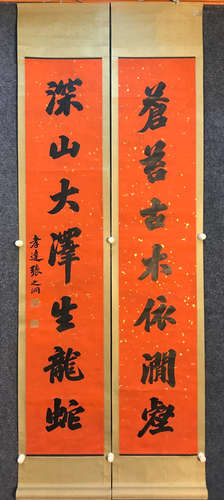 蒼苔古木依澗壑
深山大澤生龍蛇
孝達張之洞